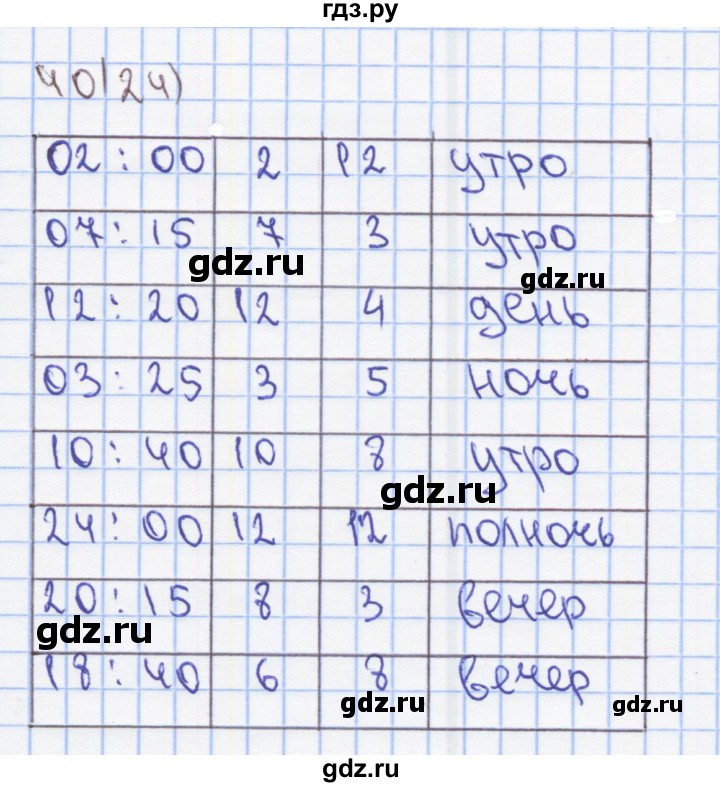 гдз.ру
40(24)
02:00 2 12 утро
07:15 7 3 утро
gdz.ru
gdz.ru
12:20 12 4 день
03:25 3 5 ночь
10:40 10 8 утро
gdz.ru
24:00 12 12 полночь
20:15 8 3 вечер
gdz.ru
18:40 6 8 вечер
gdz.ru
gdz.ru
gdz.ru